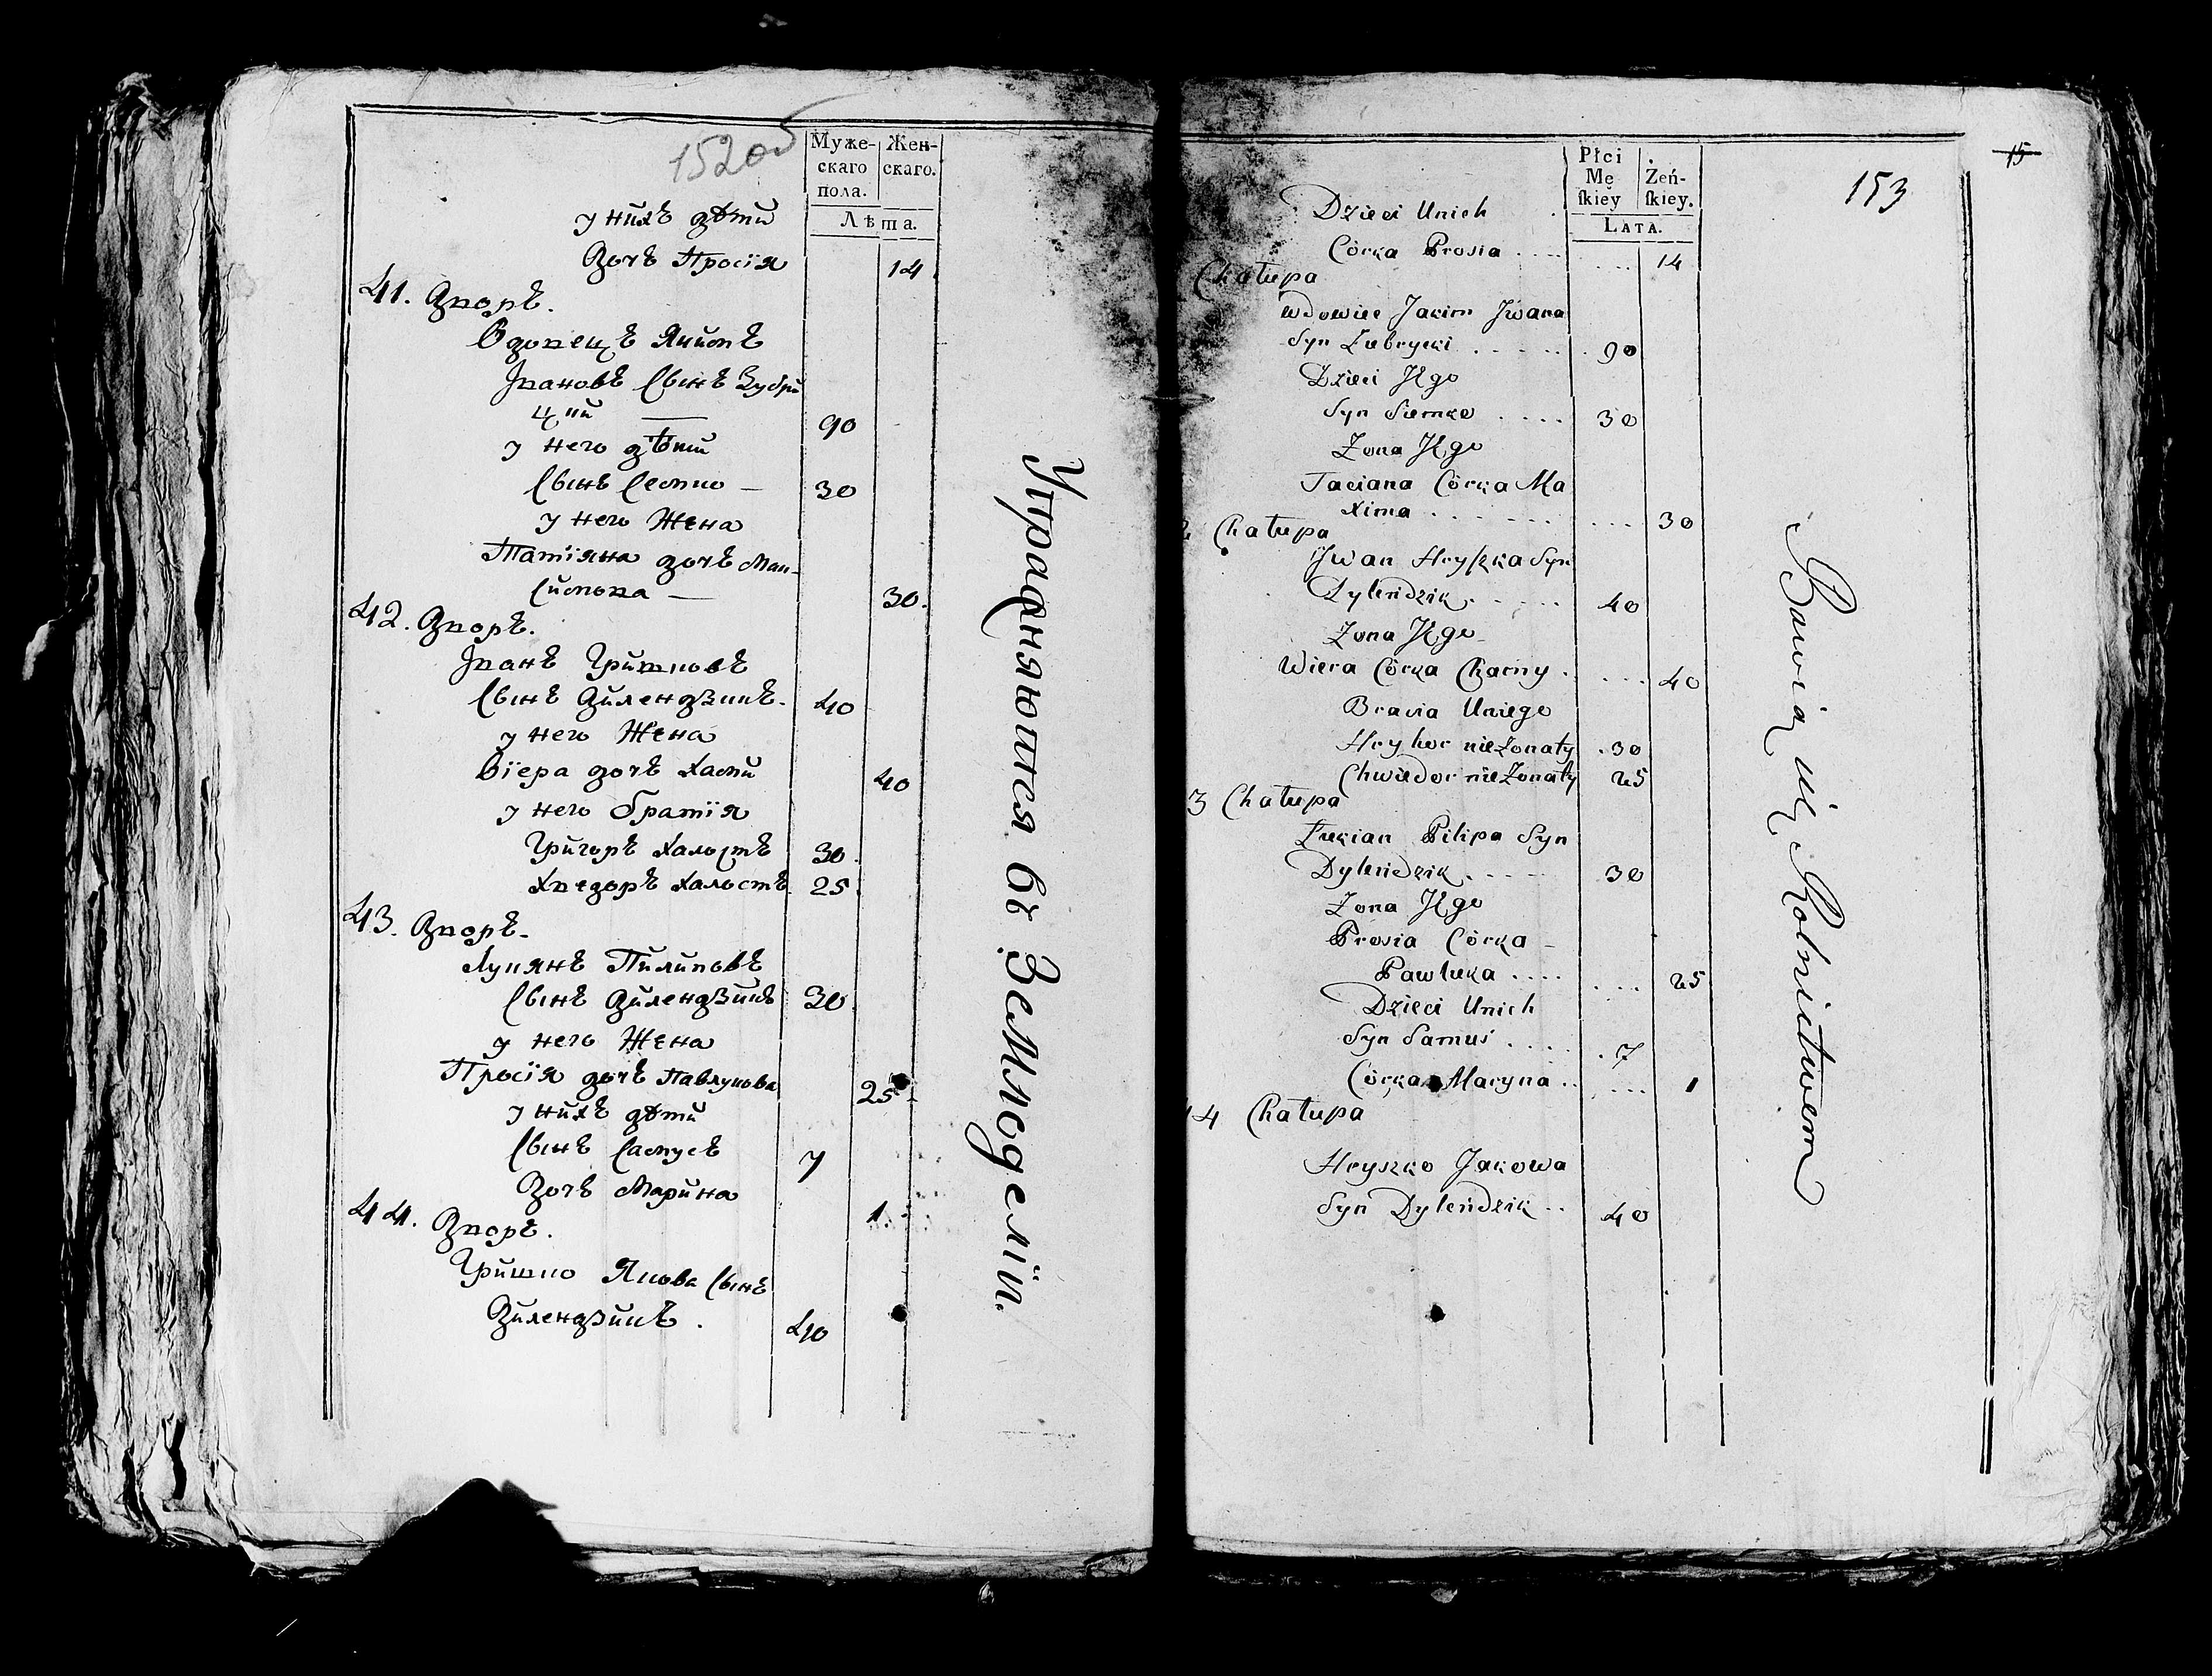 152об
Муже- Жен-
скаго скаго.
пола.
Лѣта.
у нихъ дѣти
Дочъ Просїя 14
41. Дворъ.
Вдовецъ Якимъ
Івановъ Сынъ Зубри
цки — 90
у него дѣти
Сынъ Семко — 30
у него Жена
Татїяна дочъ Мак-
Симова — 30.
42. Дворъ.
Іванъ Гришковъ
Сынъ Диленджикъ. 40
у него Жена
Вїера дочъ Хамы 40
у него братїя
Григоръ Халостъ 30.
Хведоръ Халостъ. 25.
43. Дворъ.
Лукянъ Пилиповъ
Сынъ Дилендзикъ 30.
у него Жена
Просїя дочъ Павлукова 25
у нихъ дѣти
Сынъ Самусъ 7
Дочъ Марина 1.
44. Дворъ.
Гришко Якова Сынъ
Дилендзикъ. 40
Упражняются въ Земледелїи.
15
153
Płci Żeń-
Mę skiey.
skiey
LATA.
Dzieci Unich
Córka Prosia .... .... 14
Chałupa
Wdowiec Jakim Jwana
Syn Zubrycki ..... 90
Dzieci Jego
Syn Siemko .... 30
Żona Jego
Taciana Córka Ma
xima ...... ... 30
2 Chałupa
Jwan Hryszka Syn
Dylendzik ..... 40
Żona Jego
Wiera Córka Chamy . ... 40
Bracia Uniego
Hryhor nieżonaty . 30
Chwiedor nieżonaty 25
3 Chałupa
Łukian Pilipa Syn
Dylendzik ..... 30
Żona Jego
Prosia Córka -
Pawluka .... ... 25
Dzieci Unich
Syn Samuś .... . 7
Córka Maryna .. .... 1
44 Chałupa
Hryszko Jakowa
Syn Dylendzik .. 40
Bawią się Rolnictwem